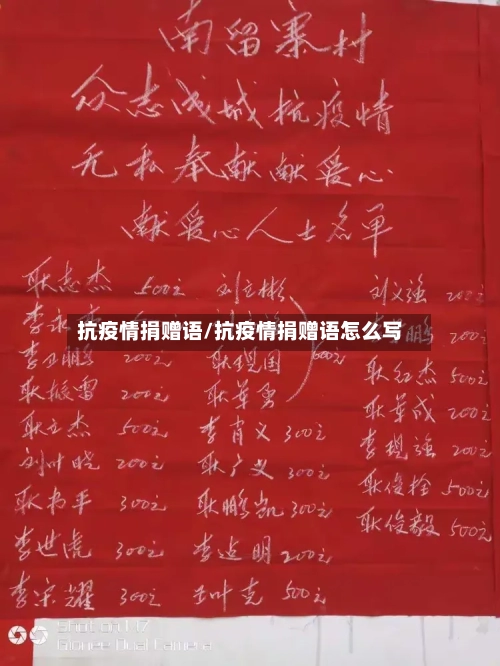 南留寨村
众志成城抗疫情
无私奉献献爱心
献爱心人士名单
耿志杰 500元 刘立彬 刘义强 200元
抗疫情捐赠语/抗疫情捐赠语怎么写
李卫鹏 200元 耿现国 600元 鹏 200元
耿振雷 200元 耿革勇 耿红杰 500元
耿立杰 500元 李肖义 300元 耿革成 200元
刘叶晓 200元 耿广义 300元 李现强 200元
耿书平 300元 耿鹏凯 300元 耿俊拴 500元
李世虎 300元 李占明 200元 耿俊毅 500元
李宗耀 300元 王叶克 500元
Shot on
Dual Camera